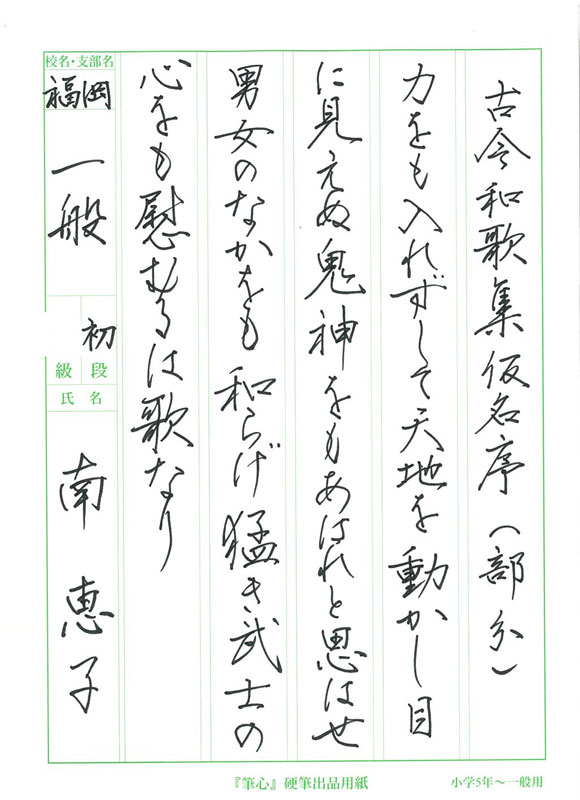 古今和歌集仮名序(部分)
力をも入れずして天地を動かし目
に見えぬ鬼神をもあはれと思はせ
男女のなかをも和らげ猛き武士の
心をも慰むるは歌なり
校名・支部名
福岡
一般
初
級段
氏名
南恵子
『筆心』硬筆出品用紙
小学5年〜一般用